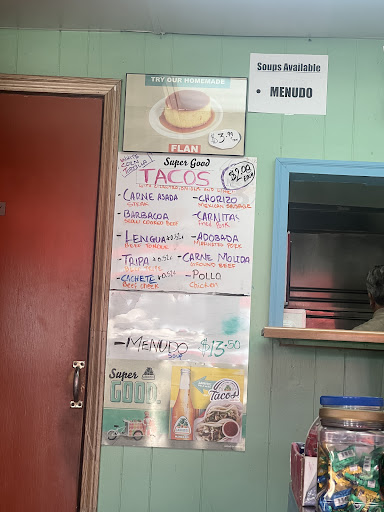 TRY OUR HOMEMADE
$3.99
FLAN
Soups Available
• MENUDO
Super Good
TACOS
$2.00
- CARNE ASADA
STEAK
- BARBACOA
SLOW COOKED BEEF
- LENGUA +0.50¢
BEEF TONGUE
- TRIPA +0.50¢
- CACHETE +0.50¢
BEEF CHEEK
- CHORIZO
MEXICAN SAUSAGE
- CARNITAS
FRIED PORK
- ADOBADA
MARINATED PORK
- CARNE MOLIDA
GROUND BEEF
- POLLO
Chicken
- MENUDO $13.50
SOUP
Super
GOOD.
Tacos